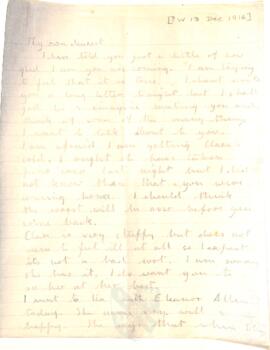 [PW 13 Dec 1916]
My own dearest
I have told you just a little of how
glad I am you are coming. I am trying
to feel that it is true. I shant write
you a long letter tonight but I shall
just be enjoying waiting you and
think of some of the many things
I want to talk about to you.
I am afraid I am getting Clare's
cold. I ought to have taken
more care last night but I did
not know then that you were
coming home. I should think
the worst will be over before you
come back.
Clare is very stuffy but does not
seem to feel ill at all so I expect
its not a bad sort. I am sorry
she has it, I do want you to
see her at her best.
I went to tea with Eleanor Allen
today. She was very well &
happy. She says that when